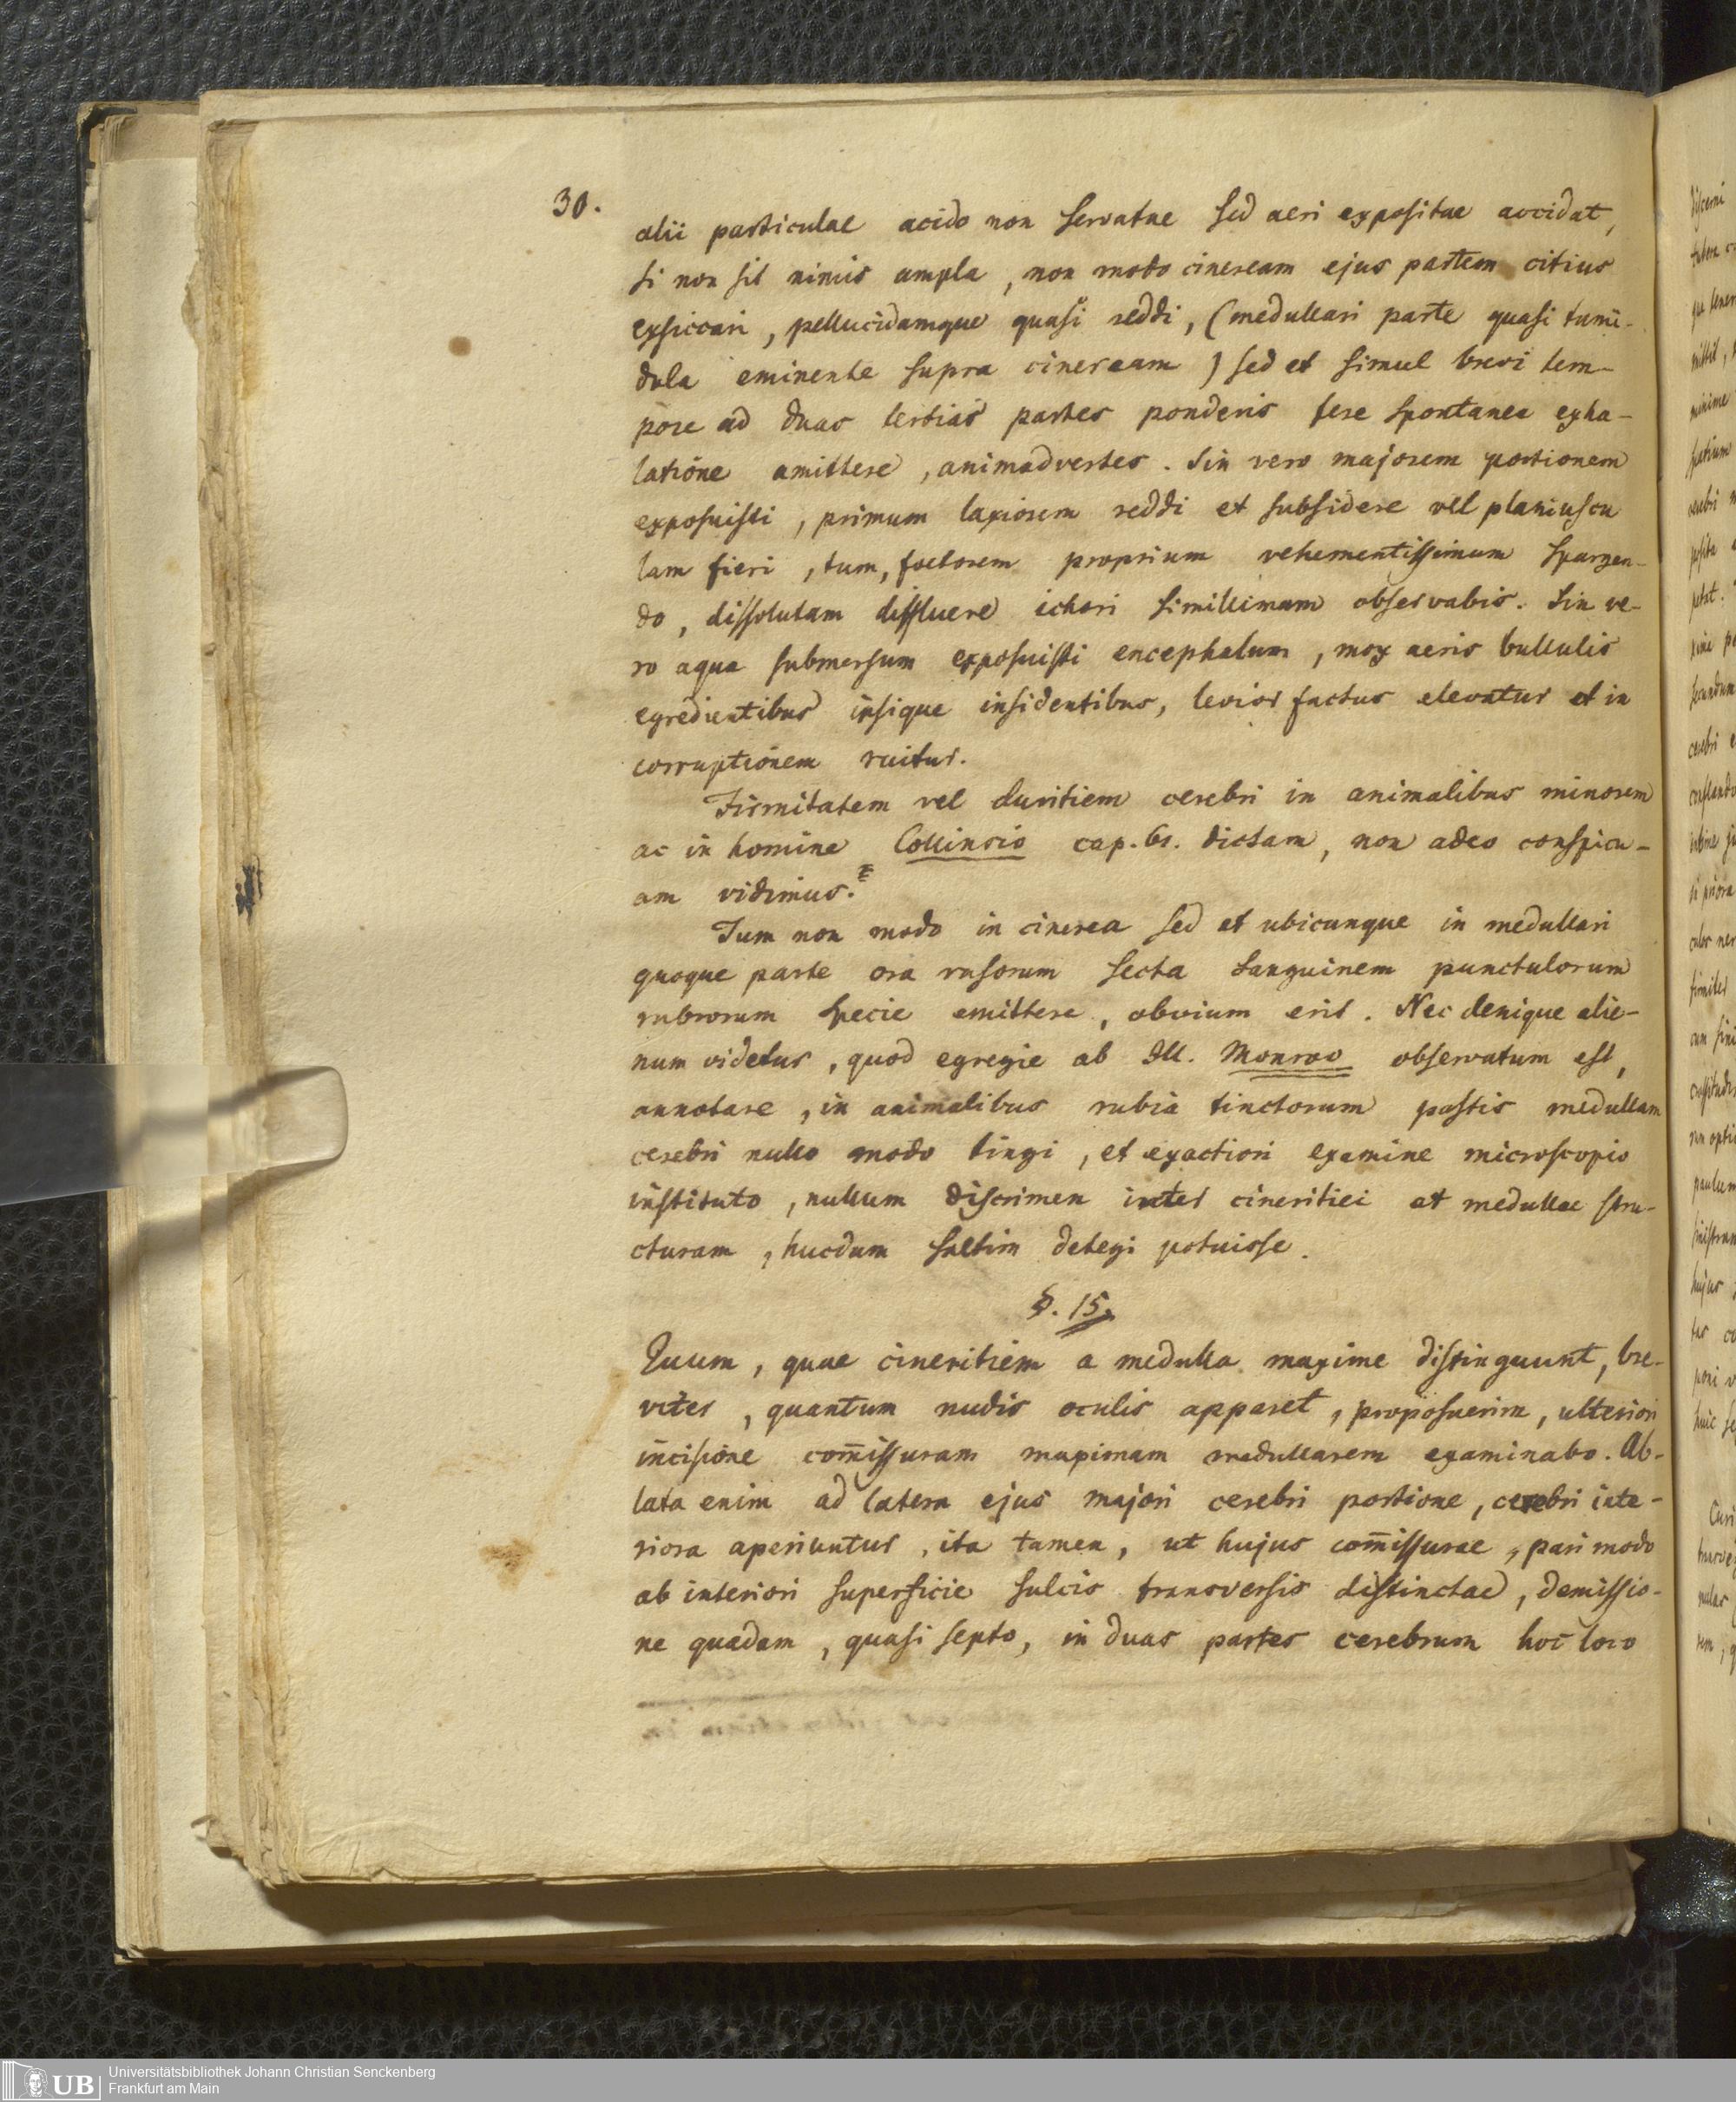 30.
alii particulae acido non servatae sed aeri expositae accidat,
si non sit nimis ampla, non modo cineream ejus partem citius
exsiccari, pellucidamque quasi reddi, (medullari parte quasi tumi-
dula eminente supra cineream) sed et simul brevi tem-
pore ad duas tertias partes ponderis fere spontanea exha-
latione amittere, animadvertes. Sin vero majorem portionem
exposuisti, primum laxiorem reddi et subsidere vel planiuscu
lam fieri, tum, foetorem proprium vehementissimum spargen-
do, dissolutam diffluere ichori simillimam observabis. Sin ve-
ro aqua submersum exposuisti encephalum, mox aeris bullulis
egredientibus ipsique insidentibus, levior factus elevatur et in
corruptionem ruitur.
Firmitatem vel duritiem cerebri in animalibus minorem
ac in homine Collinsio cap. 61. dictam, non adeo conspicu-
am vidimus.
Tum non modo in cinerea sed et ubicunque in medullari
quoque parte ora vasorum secta sanguinem punctulorum
rubrorum specie emittere, obvium erit. Nec denique alie-
num videtur, quod egregie ab Ill. Monroo observatum est,
annotare, in animalibus rubia tinctorum pastis medullam
cerebri nullo modo tingi, et exactiori examine microscopio
instituto, nullum discrimen inter cineritiei et medullae stru-
cturam, hucdum saltim detegi potuisse.
§. 15.
Quum, quae cineritiem a medulla maxime distinguunt, bre-
viter, quantum nudis oculis apparet, proposuerim, ulteriori
incisione com̄issuram maximam medullarem examinabo. Ab-
lata enim ad latera ejus majori cerebri portione, cerebri inte-
riora aperiuntur, ita tamen, ut hujus com̄issurae, pari modo
ab interiori superficie sulcis transversis distinctae, demissio-
ne quadam, quasi septo, in duas partes cerebrum hoc loco
Universitätsbibliothek Johann Christian Senckenberg
Frankfurt am Main
UB